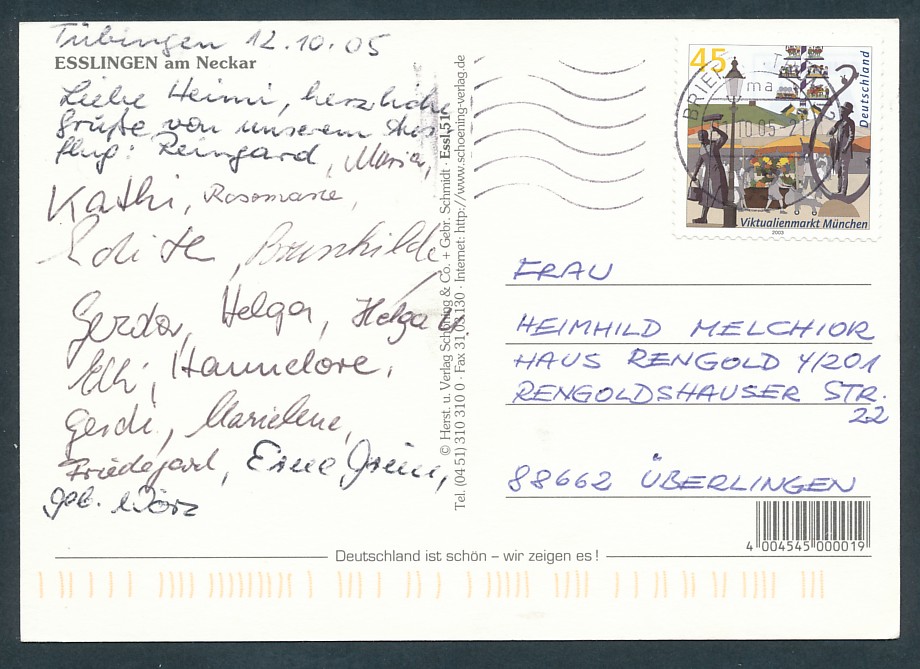 Tübingen 12.10.05
ESSLINGEN am Neckar
Liebe Heimi, herzliche
Grüße von unserem Aus
flug: Reingard, Maria,
Kathi, Rosemarie,
Edith, Brunhilde
Gerda, Helga, Helga
Elli, Hannelore,
Gerdi, Marielene,
Friedegard, Erne Grün,
geb. Wörz
© Herst. u. Verlag Schöning & Co. + Gebr. Schmidt · Essl 51
Tel. (04 51) 310 310 0 · Fax 31 03 130 · Internet: http://www.schoening-verlag.de
45
Deutschland
BRIEF
10.05-21
Viktualienmarkt München
2003
FRAU
HEIMHILD MELCHIOR
HAUS RENGOLD 4/201
RENGOLDSHAUSER STR.
22
88662 ÜBERLINGEN
4 004545 000019
Deutschland ist schön – wir zeigen es !